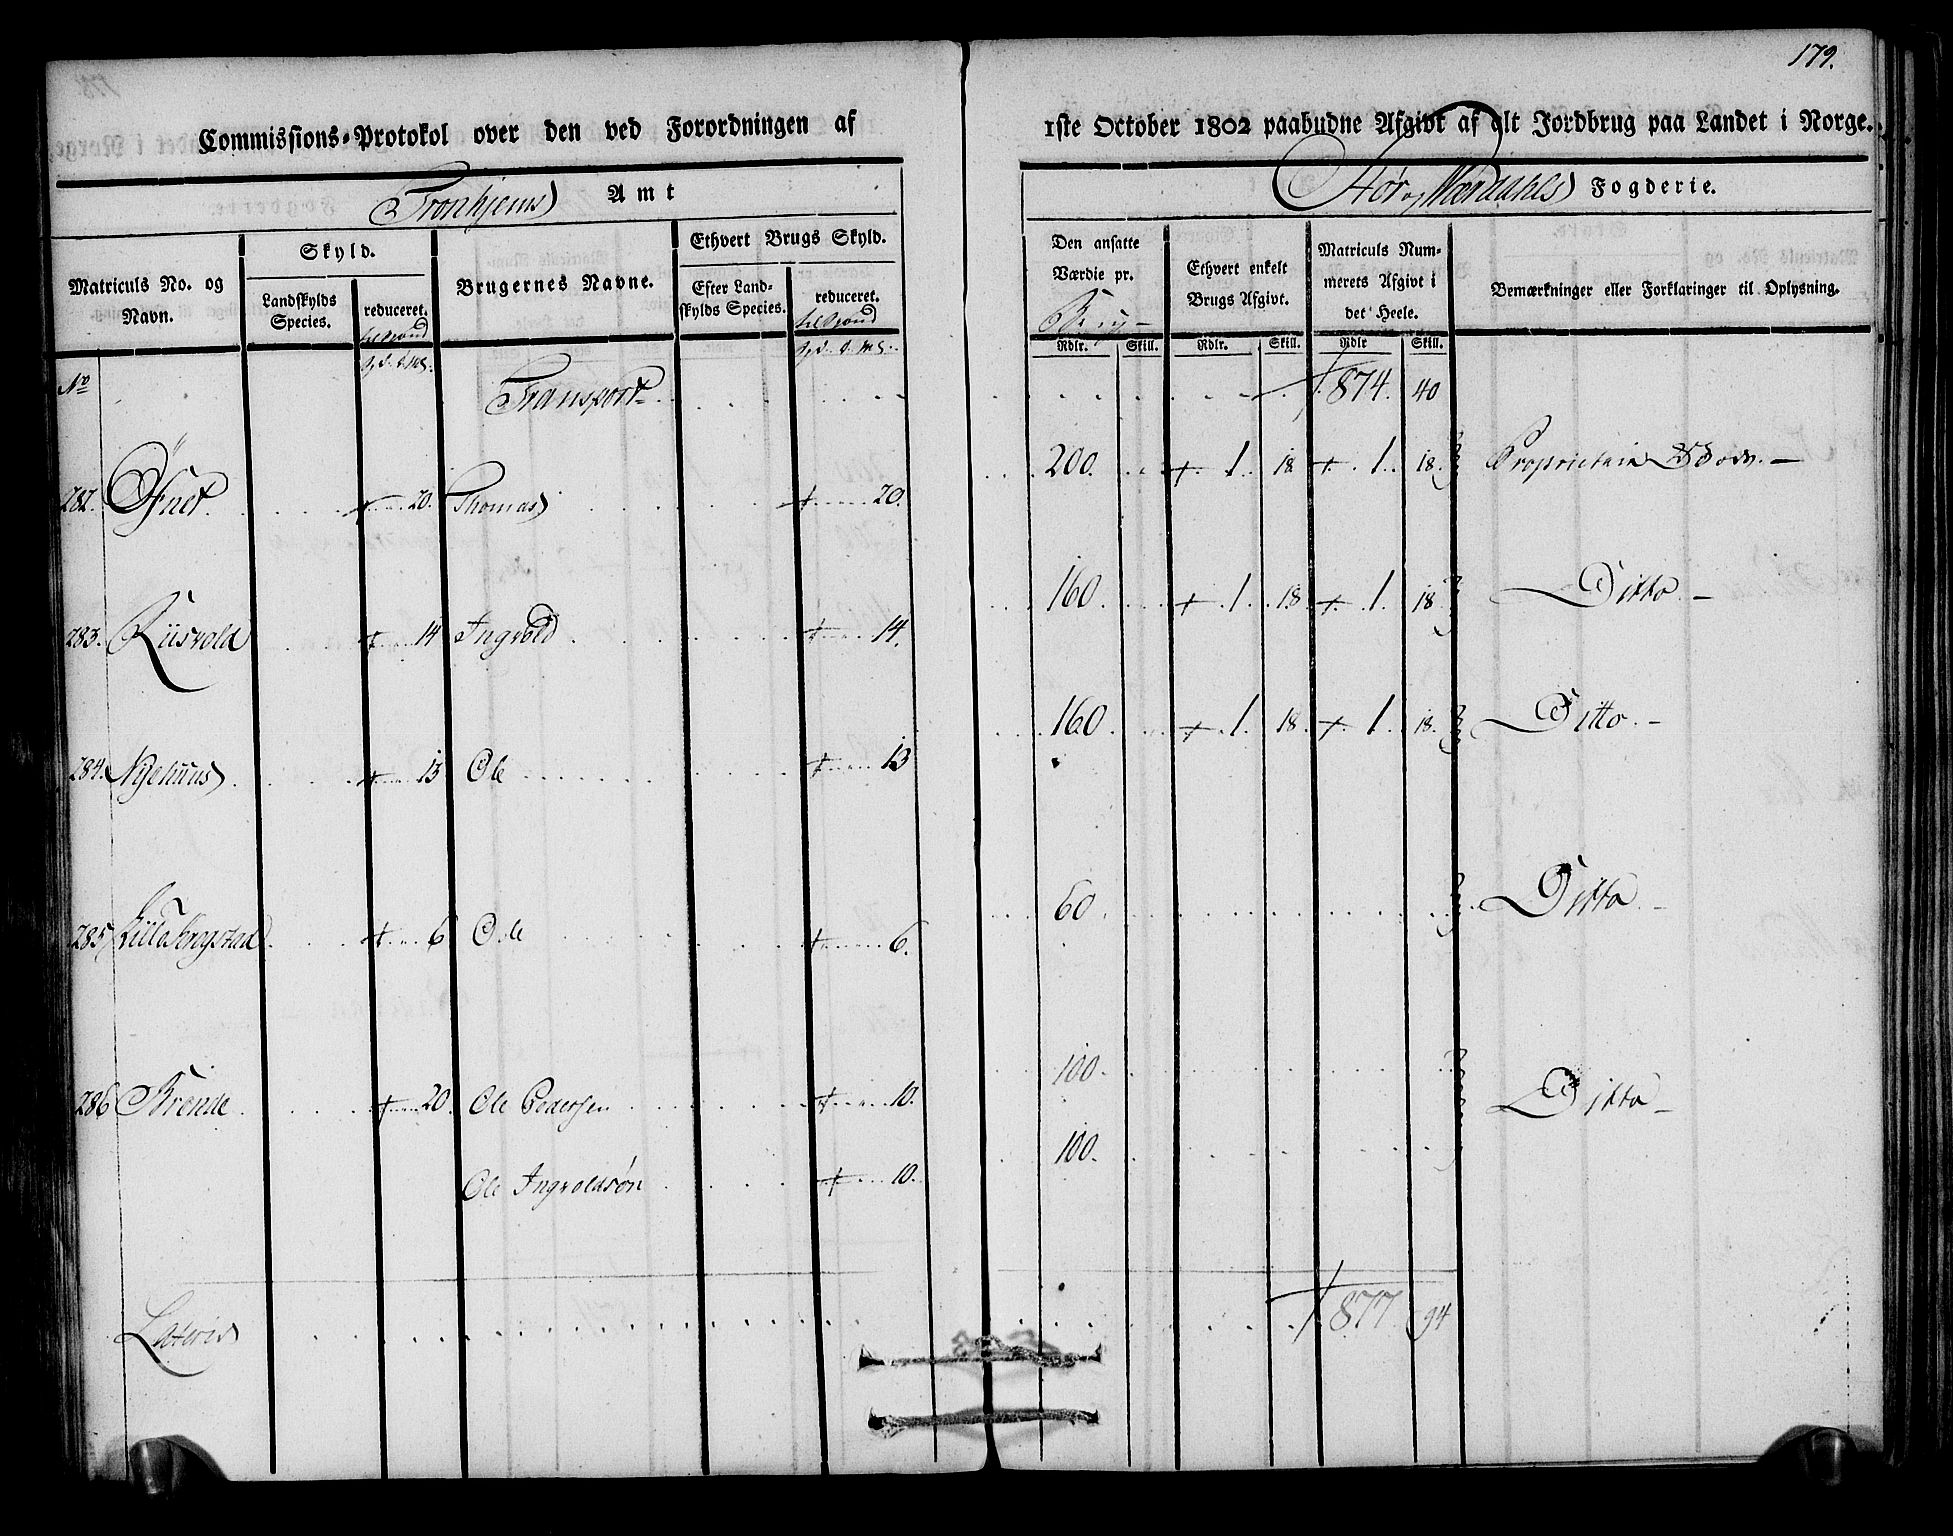 179.
Commissions-Protokol over den ved Forordningen af 1ste October 1802 paabudne Afgivt af alt Jordbrug paa Landet i Norge.
Tronhjems Amt
Stør og Værdahls Fogderie.
Matriculs No. og Navn.
Skyld.
Landskylds Species.
reduceret.
Brugernes Navne.
Ethvert Brugs Skyld.
Efter Landskylds Species.
reduceret.
Den ansatte Værdie pr. Brug
Ethvert enkelt Brugs Afgivt.
Matriculs Nummerets Afgivt i det Heele.
Bemærkninger eller Forklaringer til Oplysning.
Rdlr. Skill. Rdlr. Skill. Rdlr Skill.
No Transport 874. 40
282. Øfnet 20. Thomas 20. 200. 1. 18 1. 18. Proprietair
283. Riisvold 14 Ingvold 14. 160. 1. 18. 1. 18. Ditto
284. Nyehuus 13 Ole 13 160. 1. 18. 1. 18. Ditto
285 6 Ole 6. 60. Ditto
286 20. Ole Pedersen 10. 100. Ditto
Ole Ingvoldsøn 10. 100.
Lateris 877. 94